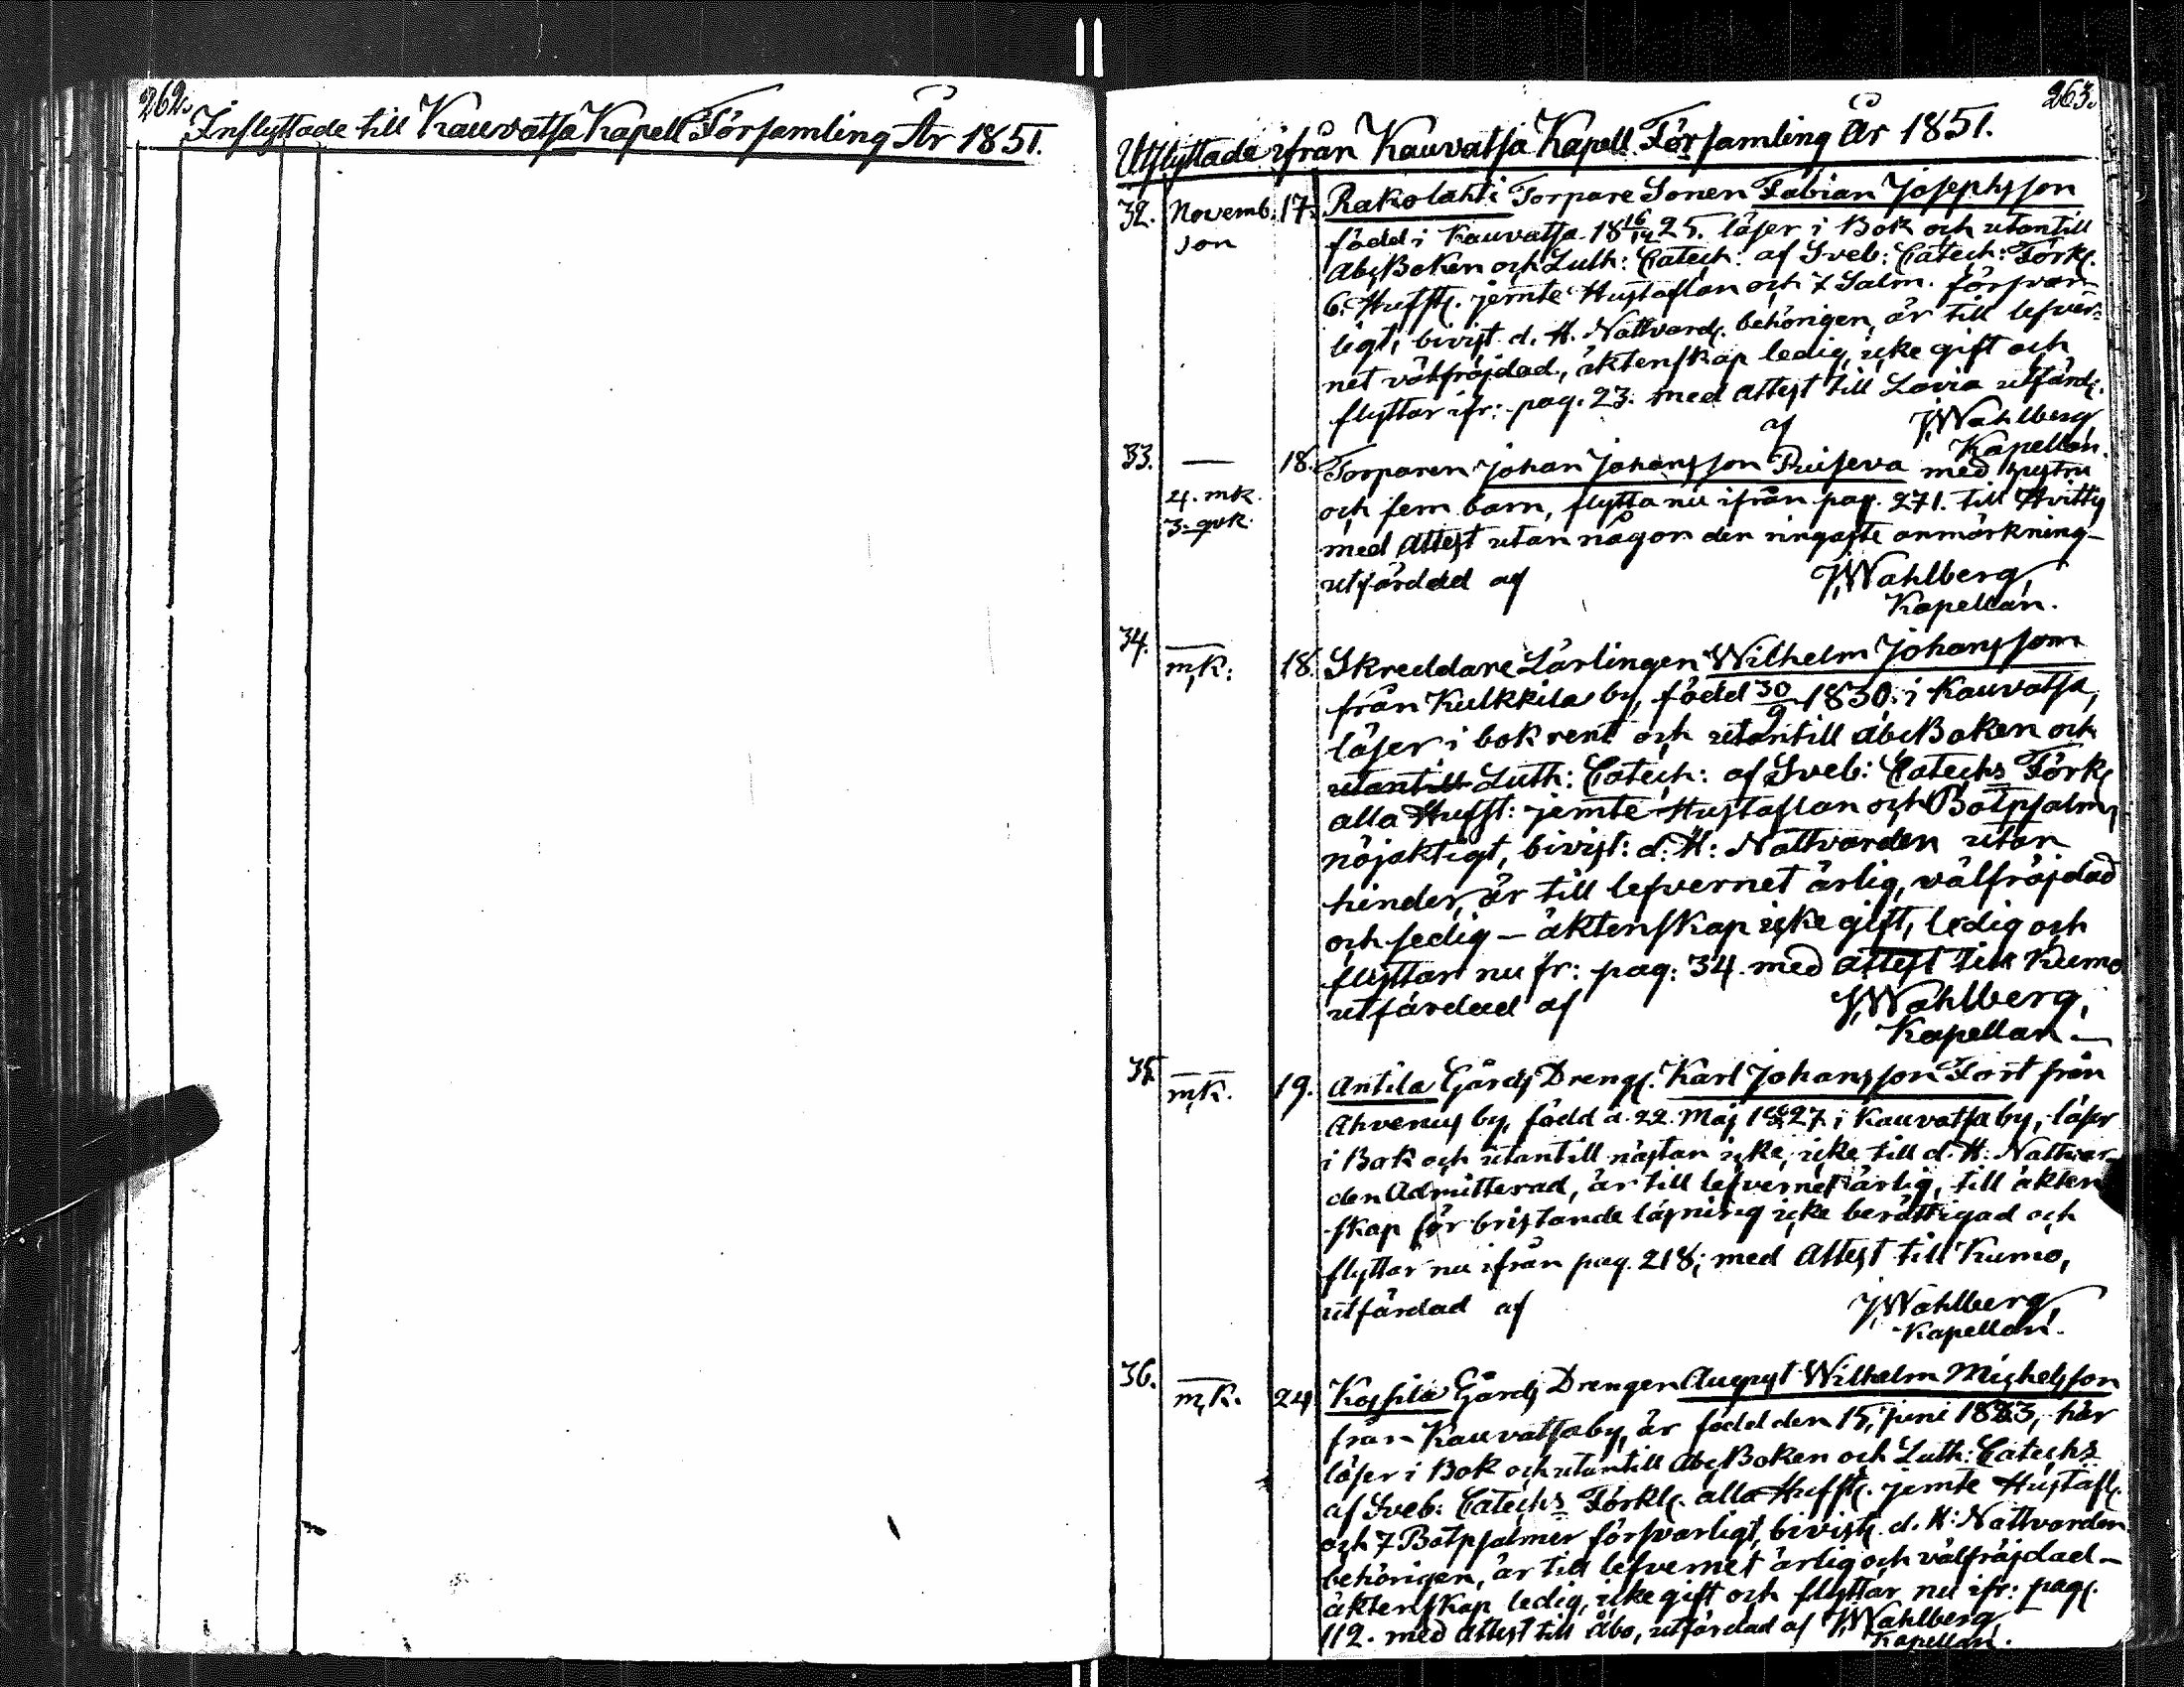 262.
Inflyttade till Kauvatsa Kapell Församling År 1851.
263.
Utflyttade ifrån Kauvatsa Kapell Församling År 1851.
32. Novemb. 17. Rakolahti Torpare Sonen Fabian Josephsson
son
född i Kauvatsa 18 16/12 25. läser i Bok och utantill
AbcBoken och Luth: Catech: af Sveb: Catech: Förkl.
6. Hufst. jemte Hustaflan och 7 Salm. försvar-
ligt, bivist. d. H. Nattvard. behörigen, är till lefver-
net välfräjdad, äktenskap ledig, icke gift och
flyttar ifr: pag. 23. med attest till Lavia utfärd.
af JWahlberg
Kapellan.
33. — 18. Torparen Johan Johansson med hustru
4. mk.
3. qvk.
och fem barn, flytta nu ifrån pag. 271. till Hvittis
med attest utan någon den ringaste anmärkning
utfärdad af JWahlberg,
Kapellan.
34. —
mk: 18. Skreddare Lärlingen Wilhelm Johansson
från Kulkkila by, född 30/9 1830. i Kauvatsa,
läser i bok rent och utantill abcBoken och
utantill Luth: Catech: af Sveb: Catechs Förk
alla Hufst: jemte Hustaflan och Botpsalm.
nöjaktigt, bivist: d: H: Nattvarden utan
hinder, är till lefvernet ärlig, välfräjdad
och sedig — äktenskap icke gift, ledig och
flyttar nu fr: pag: 34. med attest till Kumo
utfärdad af JWahlberg,
Kapellan —
35. —
mk. 19. Antila Gårds Dreng. Karl Johansson Fort från
Ahvenus by, född d. 22. Maj 1827. i Kauvatsa by, läser
i Bok och utantill nästan icke, icke till d. H. Nattvar-
den Admitterad, är till lefvernet ärlig, till äkten
-skap för bristande läsning icke berättigad och
flyttar nu ifrån pag. 218; med attest till Kumo,
utfärdad af JWahlberg,
Kapellan.
36. —
mk. 24. Kossila Gårds Drengen August Wilhelm Michelsson
från Kauvatsaby, är född den 15. juni 1833, här
läser i Bok och utantill AbcBoken och Luth: Catechs
af Sveb: Catechs Förkl. alla Hufst. jemte Hustafl.
och 7 Botpsalmer försvarligt, bivist. d. H: Nattvarden
behörigen, är till lefvernet ärlig och välfräjdad —
äktenskap ledig, icke gift och flyttar nu ifr: pag.
112. med attest till Åbo, utfärdad af JWahlberg
Kapellan.